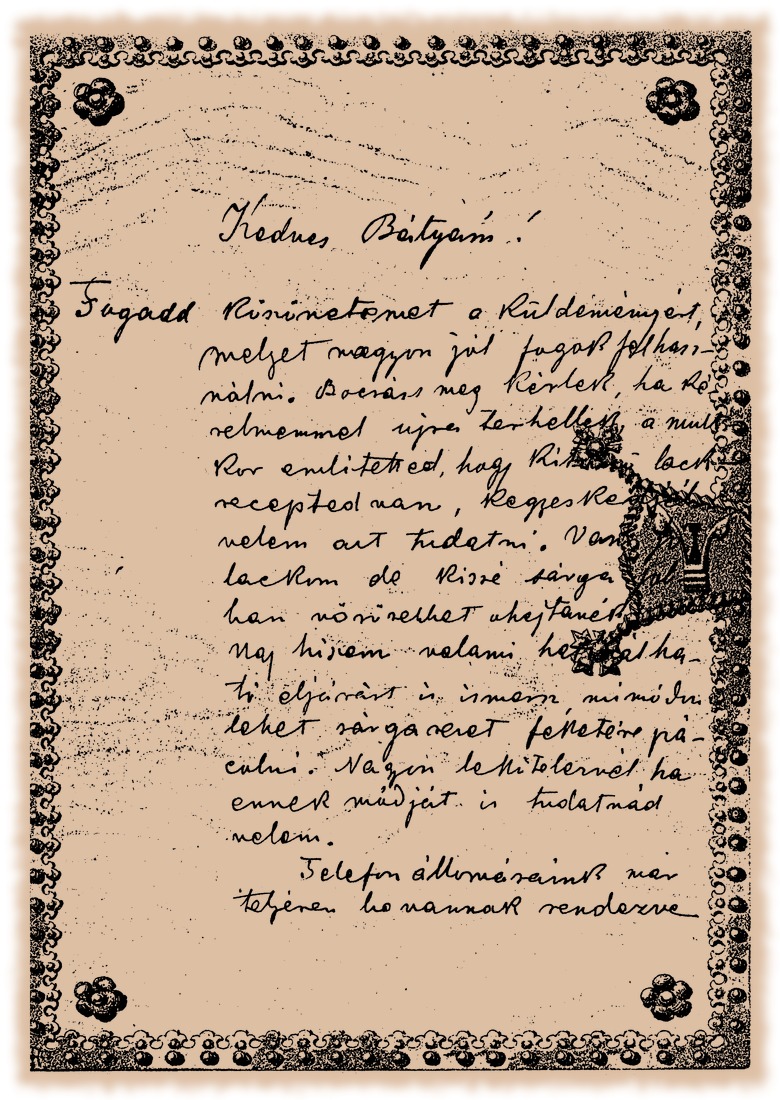 Kedves Bátyám!
Fogadd köszönetemet a küldeményért,
melyet nagyon jól fogok felhasz-
nálni. Bocsáss meg kérlek, ha ké
relmemmel ujra terhellek, a mult
kor emlitetted, hogy lack
recepted van,
velem azt tudatni. Van
lackom de kissé sárga
han vöröseket
Naj hiszem valami
tó eljárást is ismersz mi módon
lehet sárgarezet feketére pá-
colni. Nagyon leköteleznél ha
ennek módját is tudatnád
velem.
Telefon állomásaink már
teljesen be vannak rendezve